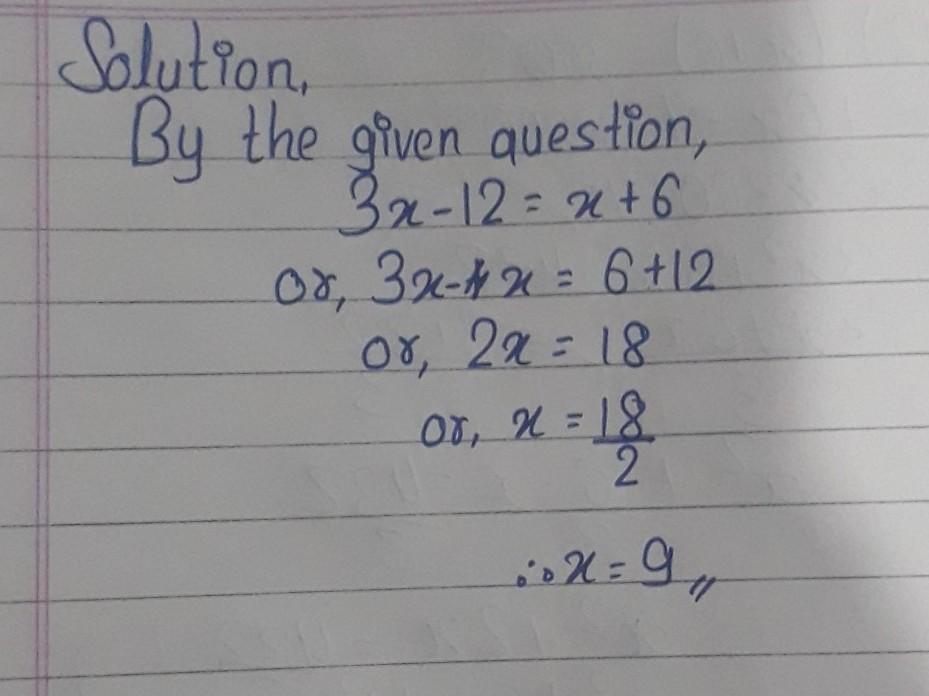 Solution,
By the given question,
3x-12 = x+6
or, 3x-x = 6+12
or, 2x = 18
or, x = 18/2
∴ x = 9,,